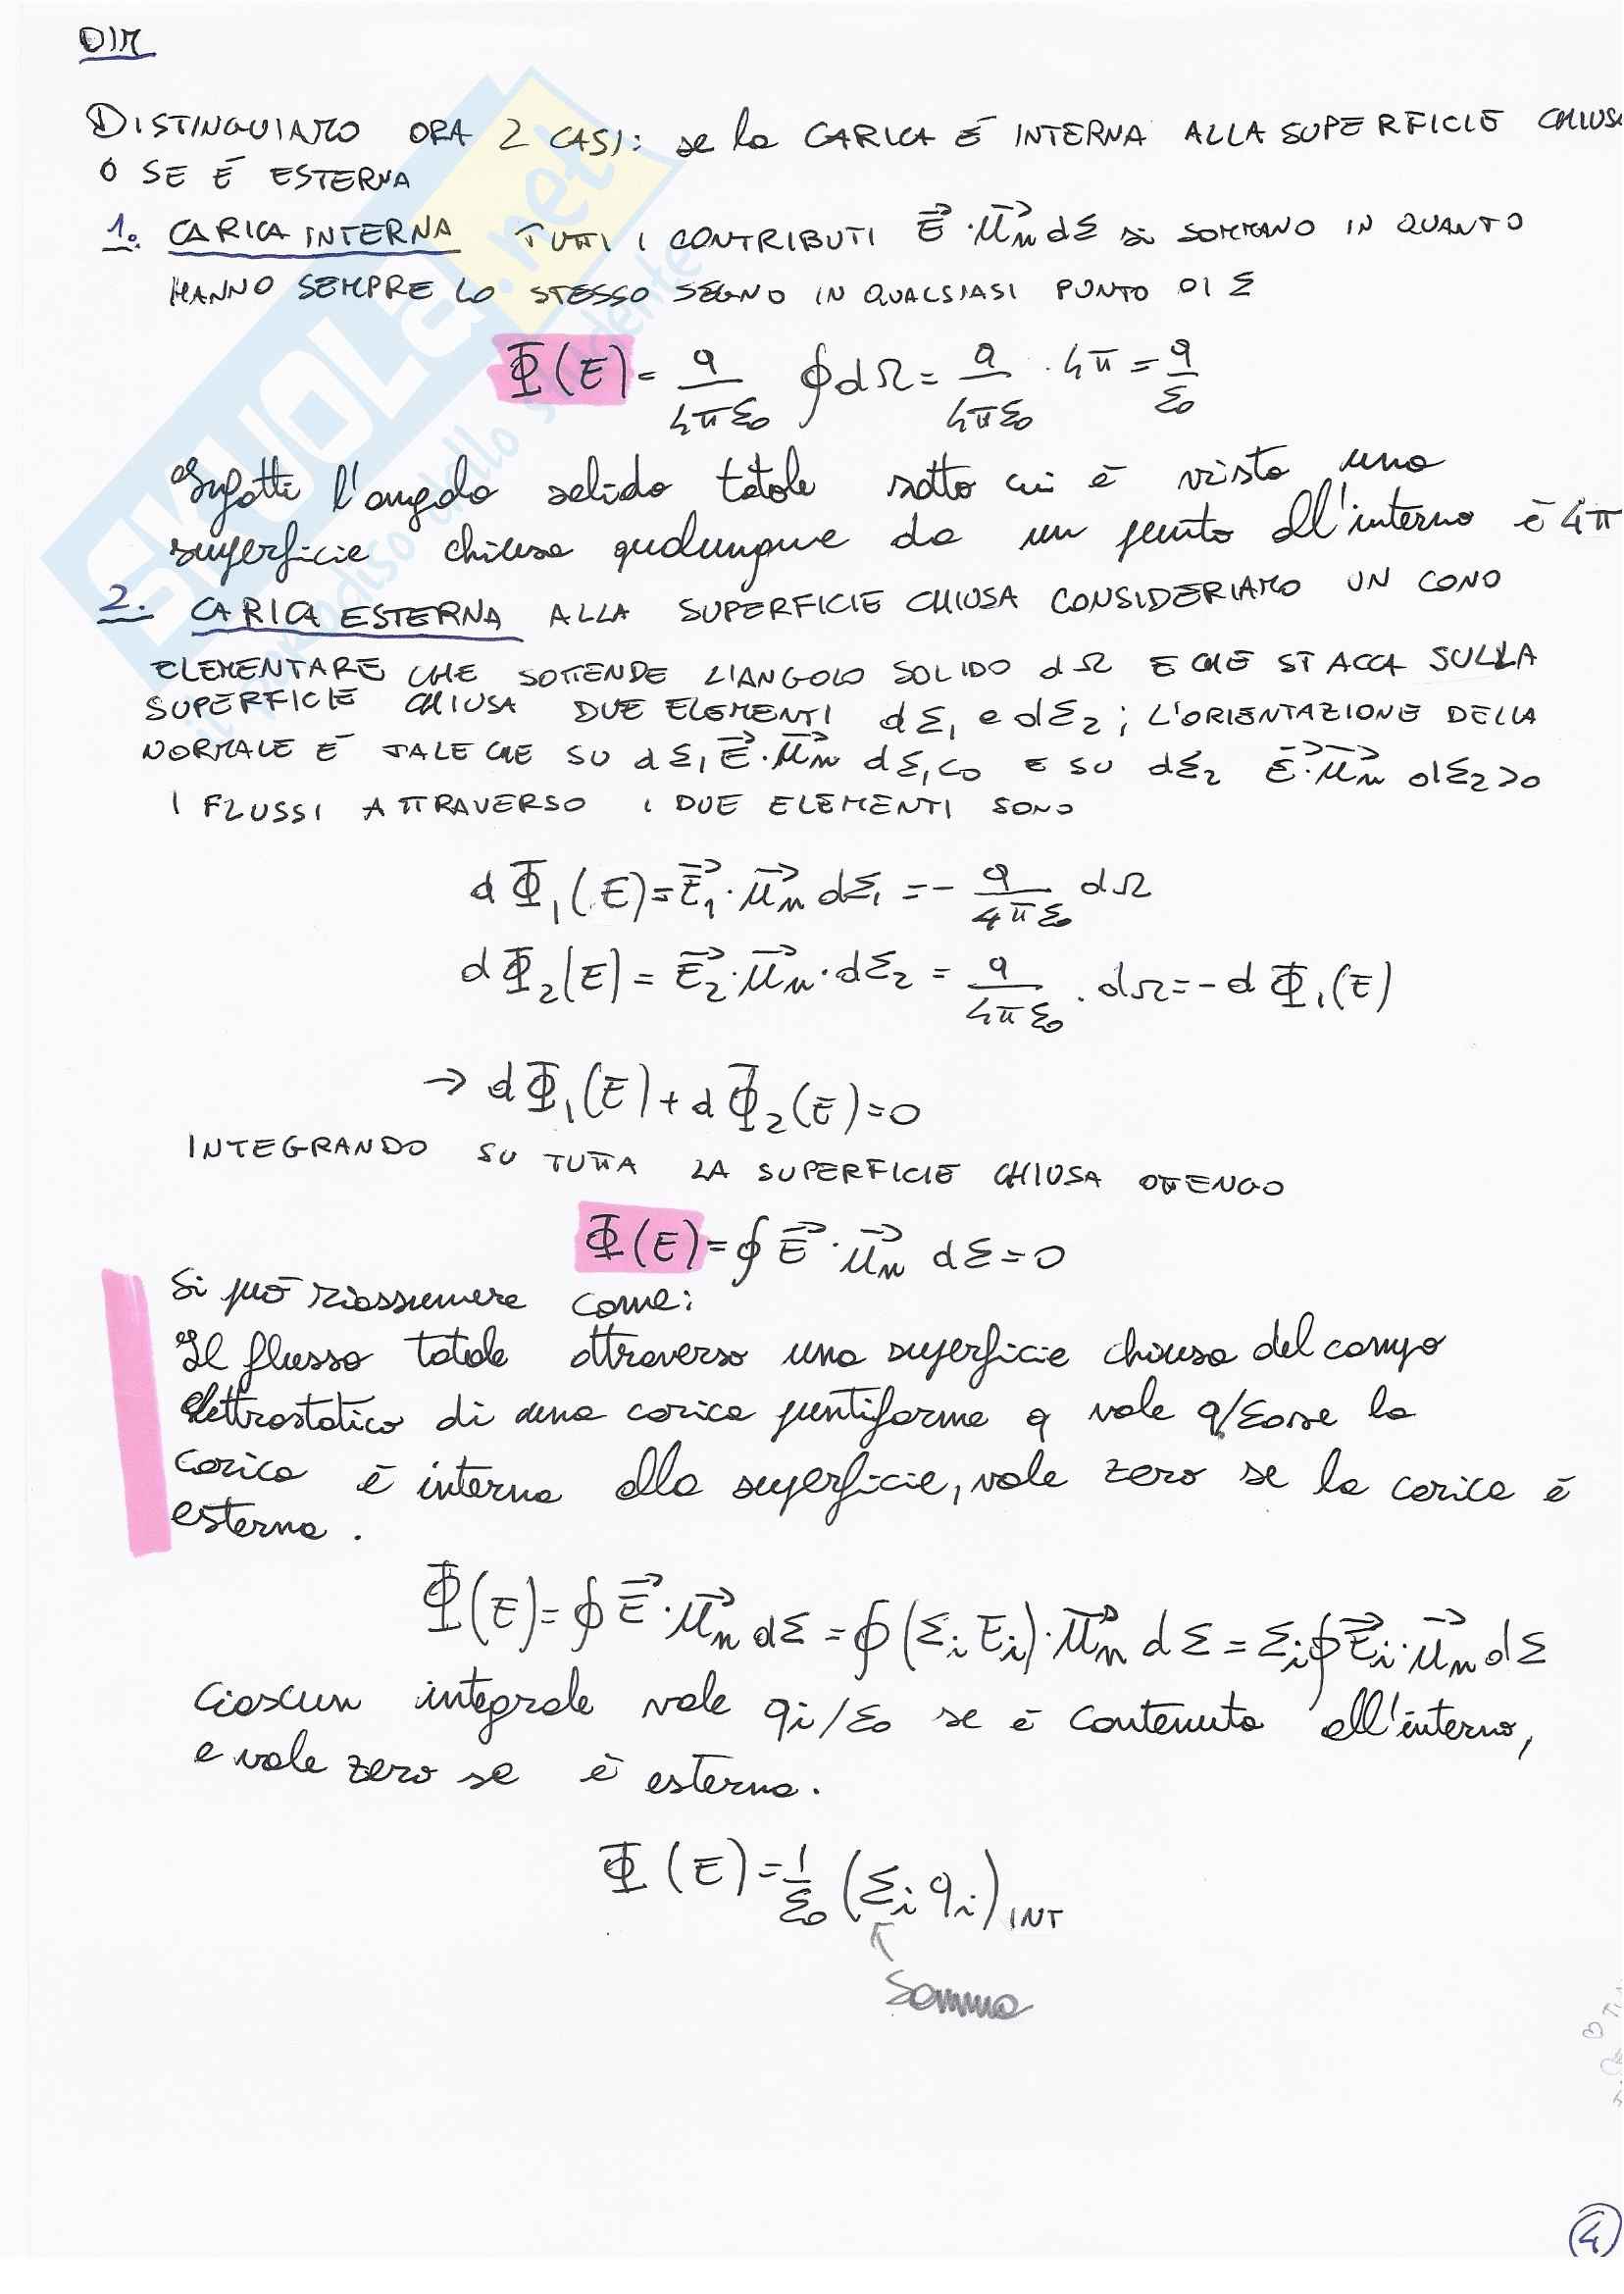 DIM
DISTINGUIAMO ORA 2 CASI: se la CARICA È INTERNA ALLA SUPERFICIE CHIUSA
O SE È ESTERNA
1. CARICA INTERNA TUTTI I CONTRIBUTI E⃗·u⃗n dΣ si SOMMANO IN QUANTO
HANNO SEMPRE LO STESSO SEGNO IN QUALSIASI PUNTO DI Σ
Φ(E) = q/4πε₀ ∮dΩ = q/4πε₀ · 4π = q/ε₀
Infatti l'angolo solido totale sotto cui è vista una
superficie chiusa qualunque da un punto all'interno è 4π
2. CARICA ESTERNA ALLA SUPERFICIE CHIUSA CONSIDERIAMO UN CONO
ELEMENTARE CHE SOTTENDE L'ANGOLO SOLIDO dΩ E CHE STACCA SULLA
SUPERFICIE CHIUSA DUE ELEMENTI dΣ₁ e dΣ₂; L'ORIENTAZIONE DELLA
NORMALE È TALE CHE SU dΣ₁ E⃗·u⃗n dΣ₁<0 E SU dΣ₂ E⃗·u⃗n dΣ₂>0
I FLUSSI ATTRAVERSO I DUE ELEMENTI SONO
dΦ₁(E) = E⃗₁·u⃗n dΣ₁ = - q/4πε₀ dΩ
dΦ₂(E) = E⃗₂·u⃗n·dΣ₂ = q/4πε₀ · dΩ = -dΦ₁(E)
→ dΦ₁(E) + dΦ₂(E) = 0
INTEGRANDO SU TUTTA LA SUPERFICIE CHIUSA OTTENGO
Φ(E) = ∮E⃗·u⃗n dΣ = 0
Si può riassumere come:
Il flusso totale attraverso una superficie chiusa del campo
elettrostatico di una carica puntiforme q vale q/ε₀ se la
carica è interna alla superficie, vale zero se la carica è
esterna.
Φ(E) = ∮E⃗·u⃗n dΣ = ∮(Σi Ei)·u⃗n dΣ = Σi∮E⃗i·u⃗n dΣ
Ciascun integrale vale qi/ε₀ se è contenuta all'interno,
e vale zero se è esterna.
Φ(E) = 1/ε₀ (Σi qi)INT
Somma
4
SKUOLA.net